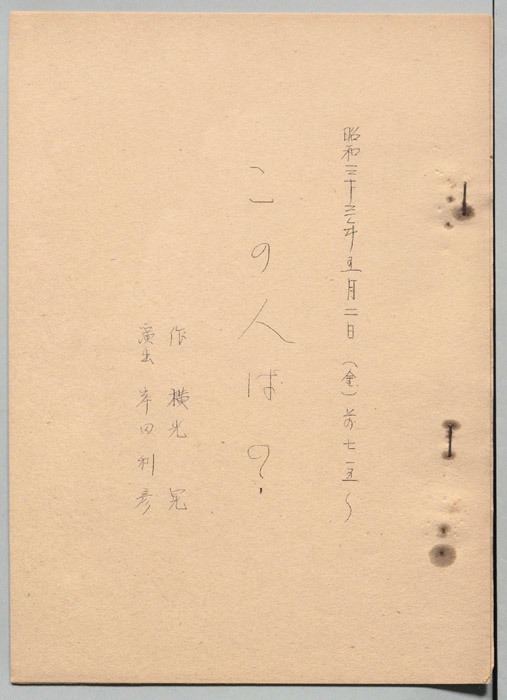 昭和三十三年五月二日（金）前七・五〜
この人は？
作 横光 晃
演出 岸田利彦